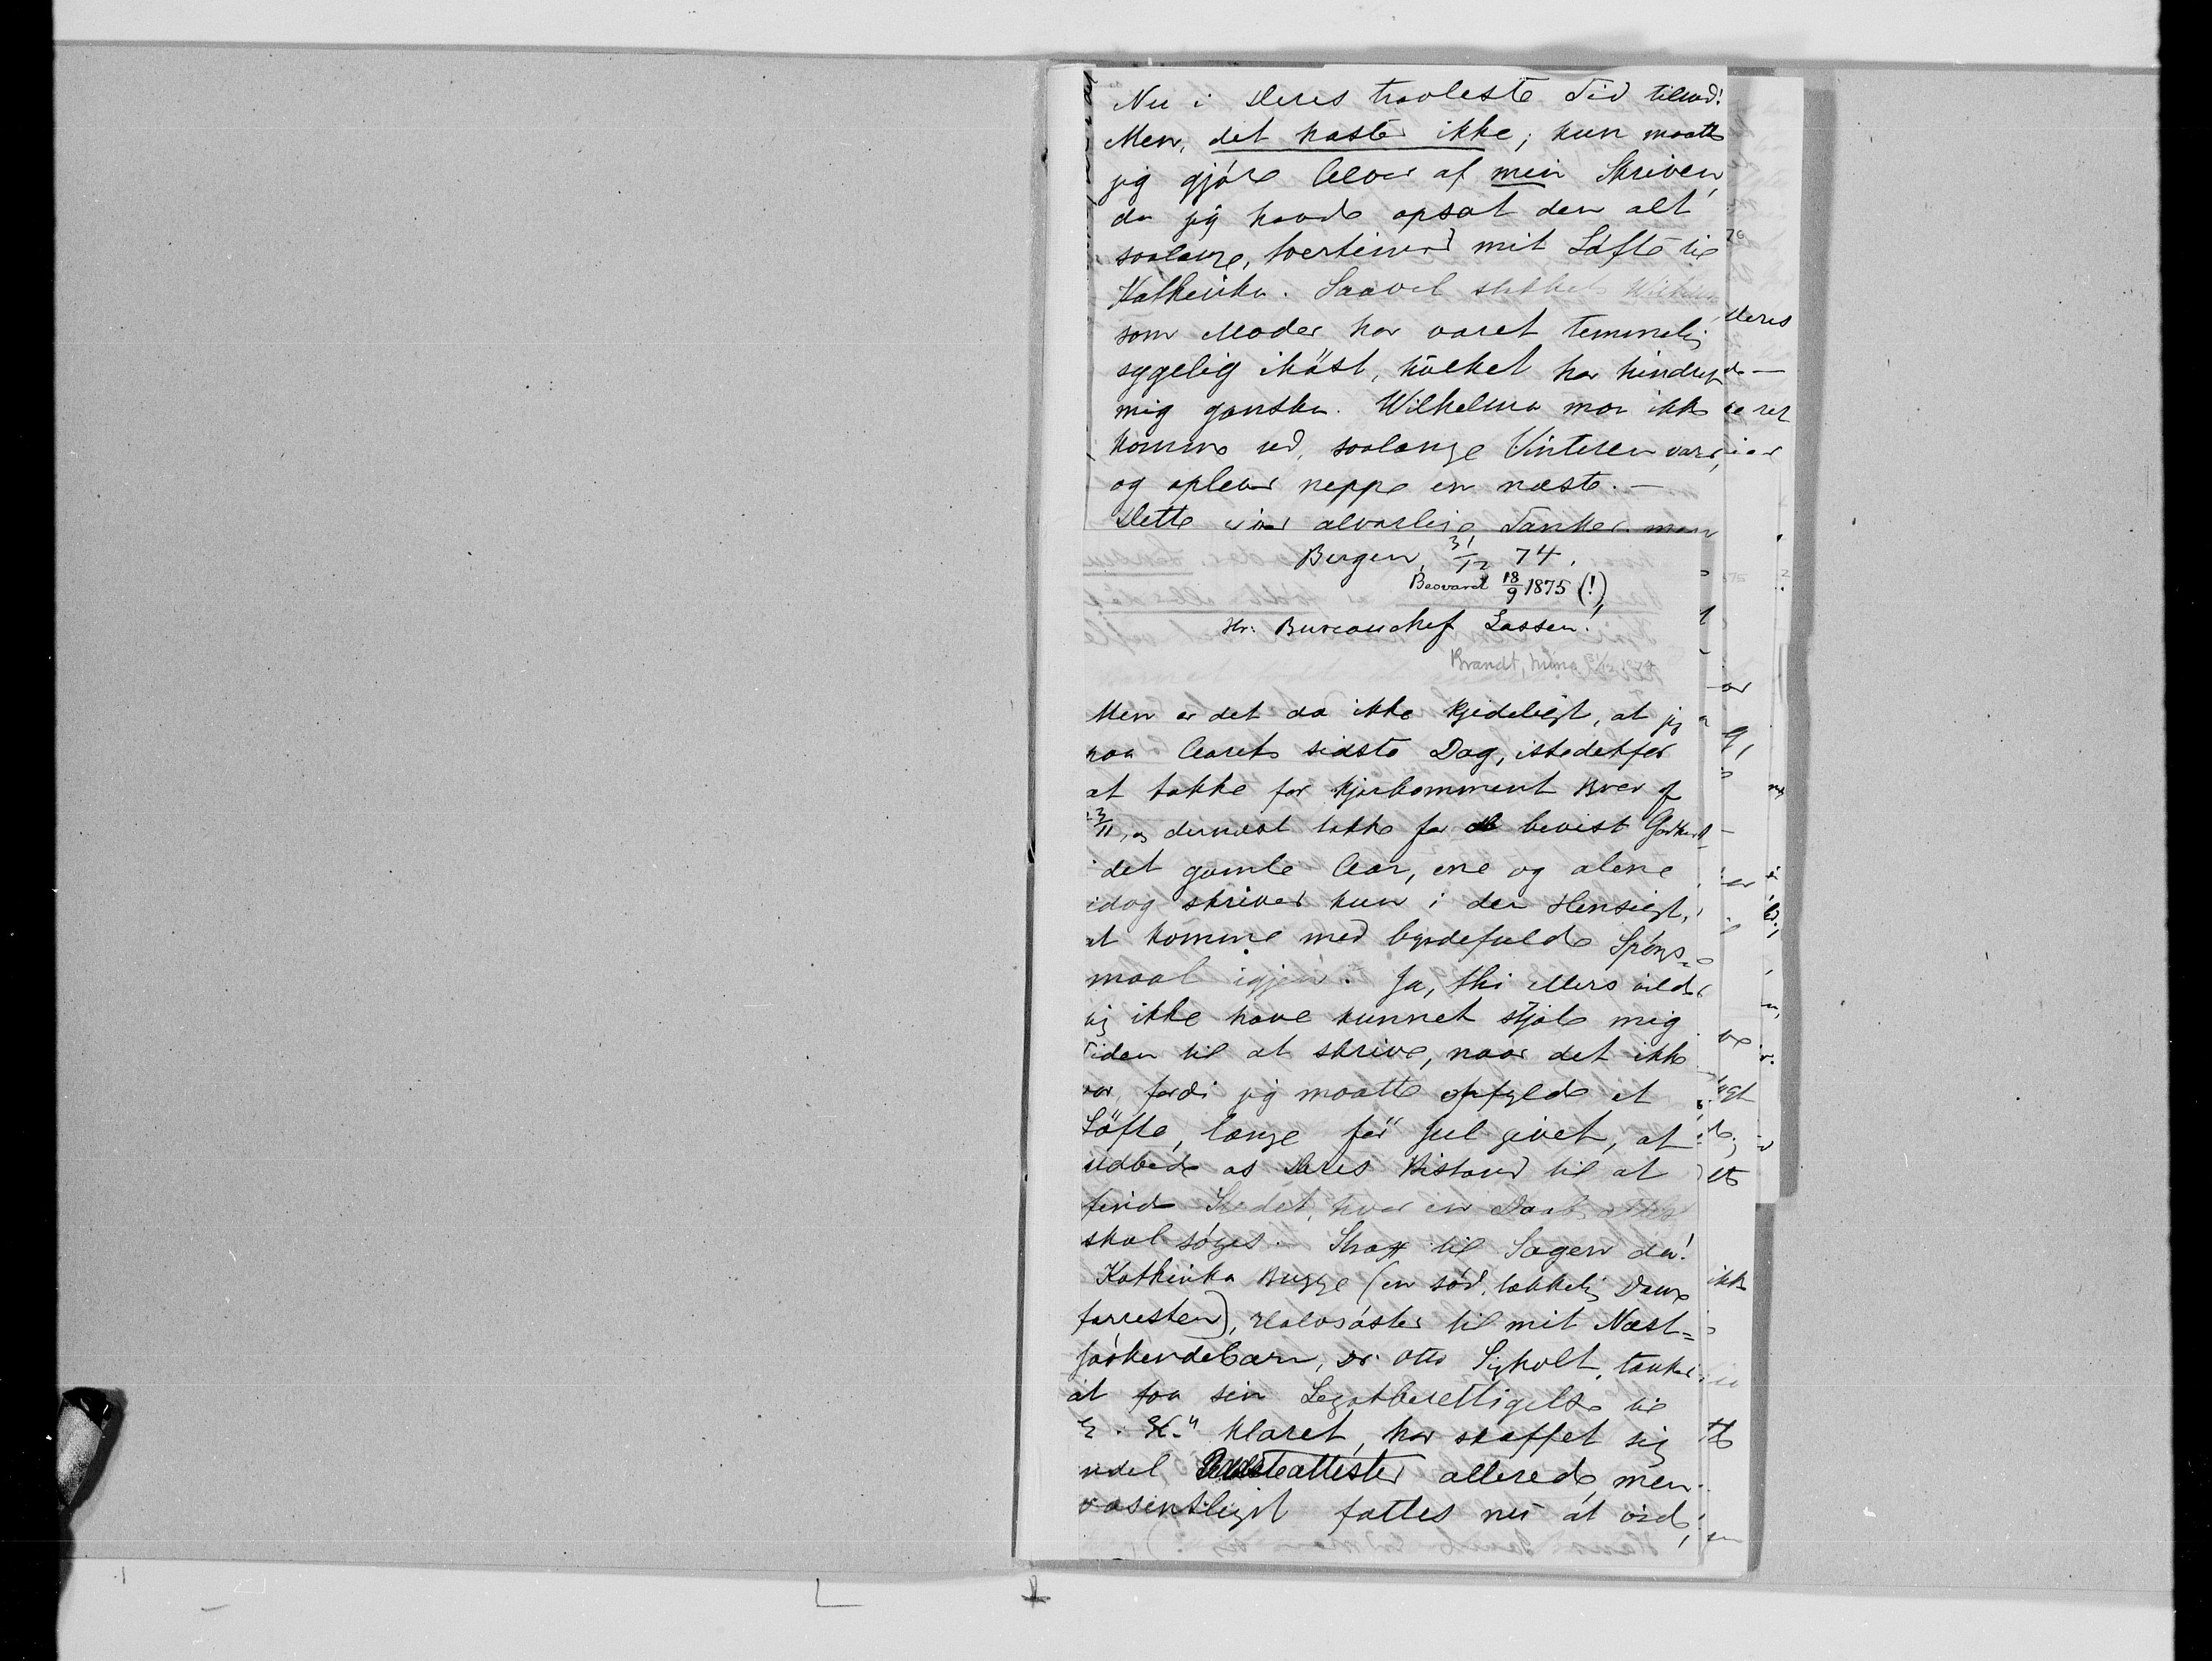 Nu i Deres travleste Tid tilmed!
Men, det haster ikke; kun maatte
jeg gjøre Alvor af min Skriven,
da jeg havde opsat den alt
saalænge, tvertimod mit Løfte til
Kathinka. Saavel stakkels Wilhelma
som Moder har været temmelig
sygelig ihöst, hvilket har hindret
mig ganske. Wilhelma maa ikke
komme ud, saalænge Vinteren varer,
og oplever neppe en næste. —
Dette er alvorlige Tanker
Bergen, 31/12 74.
Besvaret 18/9 1875 (!)
Hr. Bureauchef Lassen!
Brandt, Mina 31/12 1874
Men er det da ikke kjedeligt, at jeg
paa Aarets sidste Dag, istedetfor
at takke for kjærkomment Brev af
23/11, og dernæst takke for bevist Godhed
i det gamle Aar, ene og alene
idag skriver kun i den Hensigt,
at komme med byrdefulde Spørgs-
maal igjen? Ja, thi ellers vilde
jeg ikke have kunnet stjæle mig
Tiden til at skrive, naar det ikke
var, fordi jeg maatte opfylde et
Löfte, længe för Jul givet, at
udbede os Deres Bistand til at
finde Stedet, hvor en Daabsattest
skal søges. Strax til Sagen da!
Kathinka Bugge (en sød, tækkelig Dame
forresten), Halvsøster til mit Næst-
søskendebarn, Dr. Otto Sigholt, tænker
at faa sin Legatberettigelse til
klaret, har skaffet sig
en del attester allerede, men
væsentligst fattes nu at vide,